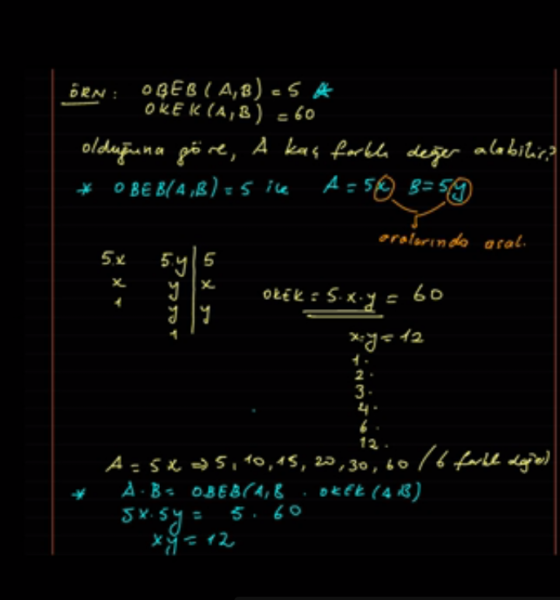 ÖRN: OBEB(A,B) = 5
OKEK(A,B) = 60
olduğuna göre, A kaç farklı değer alabilir?
* OBEB(A,B) = 5 ise A = 5x B = 5y
aralarında asal.
5.x 5.y | 5
x y | x
1 y | y
1
OKEK = 5.x.y = 60
x.y = 12
1.
2.
3.
4.
6.
12.
A = 5x ⇒ 5, 10, 15, 20, 30, 60 / 6 farklı değer
* A.B = OBEB(A,B . OKEK(A,B)
5x.5y = 5.60
xy = 12